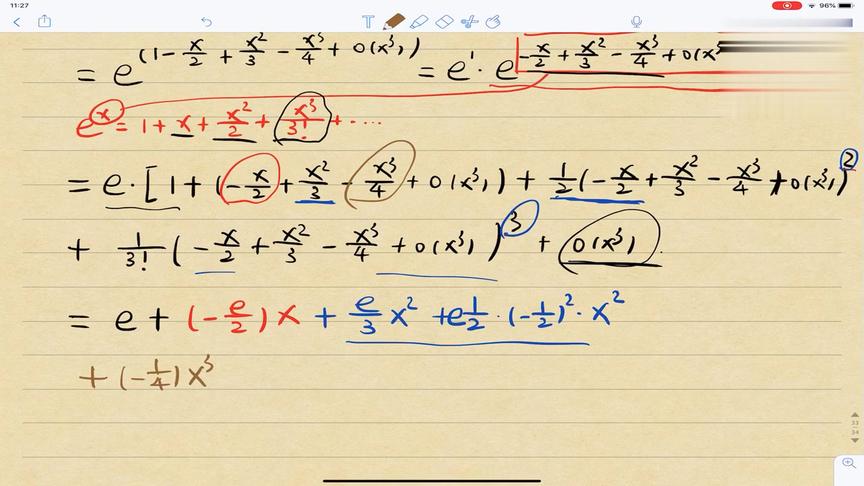 11:27
96%
T
= e^(1 - x/2 + x²/3 - x³/4 + o(x³)) = e¹ · e^(-x/2 + x²/3 - x³/4 + o(x³
e^x = 1 + x + x²/2 + x³/3! + ····
= e · [ 1 + (-x/2 + x²/3 - x³/4 + o(x³)) + 1/2 (-x/2 + x²/3 - x³/4 + o(x³))²
+ 1/3! (-x/2 + x²/3 - x³/4 + o(x³))³ + o(x³).
= e + (-e/2) x + e/3 x² + e 1/2 · (-1/2)² · x²
+ (-1/4) x³
33
34